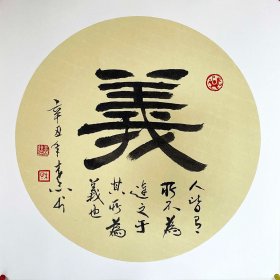 義
人皆有
所不為
達之于
其所為
義也
辛丑年